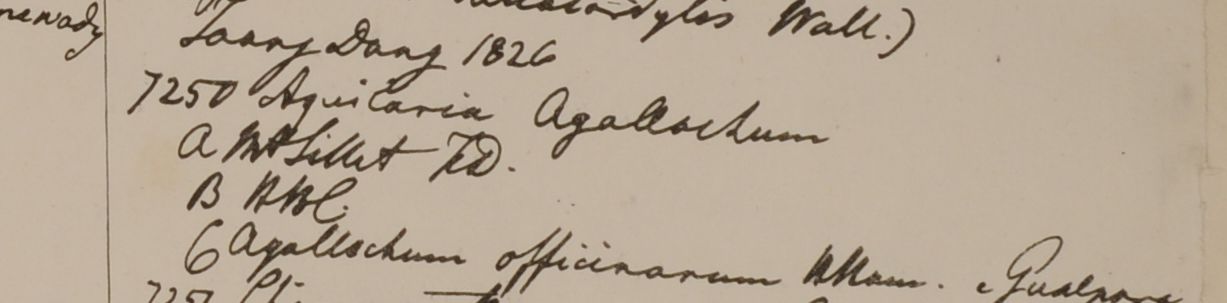 Wall.)
Taong Dong 1826
7250 Aquilaria Agallochum
A Mt Sillet F.D.
B HBC.
C Agallochum officinarum HHam. e Gualpara
7251